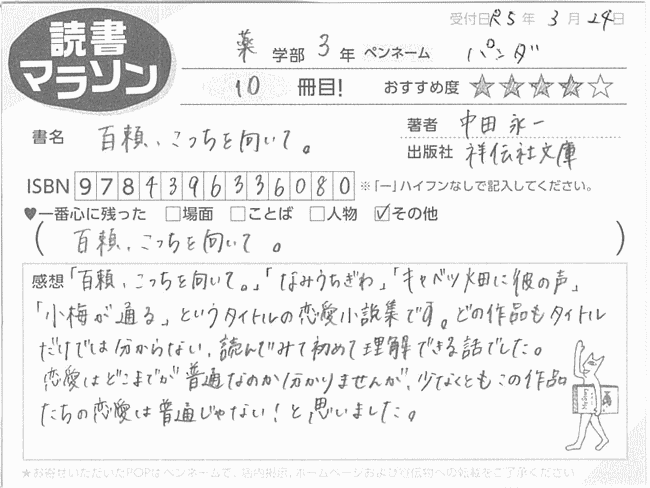 読書
マラソン
受付日R5年3月24日
薬学部3年 ペンネーム パンダ
10冊目! おすすめ度 ★★★★☆
書名 百瀬、こっちを向いて。
著者 中田永一
出版社 祥伝社文庫
ISBN 9784396336080 ※「−」ハイフンなしで記入してください。
♥一番心に残った □場面 □ことば □人物 ☑その他
( 百瀬、こっちを向いて。 )
感想 「百瀬、こっちを向いて。」「なみうちぎわ」「キャベツ畑に彼の声」
「小梅が通る」というタイトルの恋愛小説集です。どの作品もタイトル
だけでは分からない、読んでみて初めて理解できる話でした。
恋愛はどこまでが普通なのか分かりませんが、少なくともこの作品
たちの恋愛は普通じゃない!と思いました。
★お寄せいただいたPOPはペンネームで、店内掲示、ホームページおよび宣伝物への転載をご了承ください